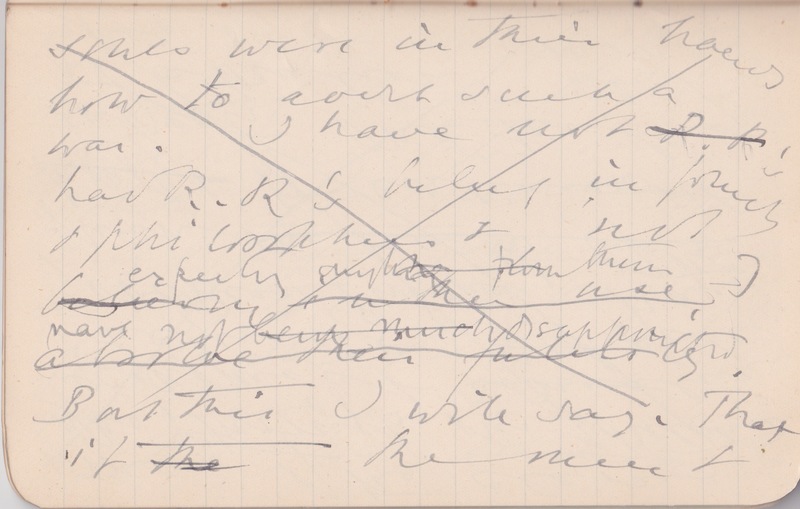 souls were in their hands
how to avert such a
war. I have not R. R.
had R. R's belief in priests
& philosophers & not
expecting anything from them I
believing in their use
have not been much disappointed.
absolve their
But this I will say. That
if the the men &